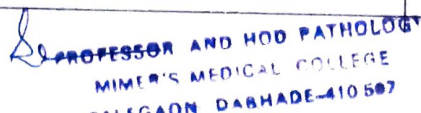 PROFESSOR AND HOD PATHOLOGY
MIMER'S MEDICAL COLLEGE
TALEGAON DABHADE-410 507